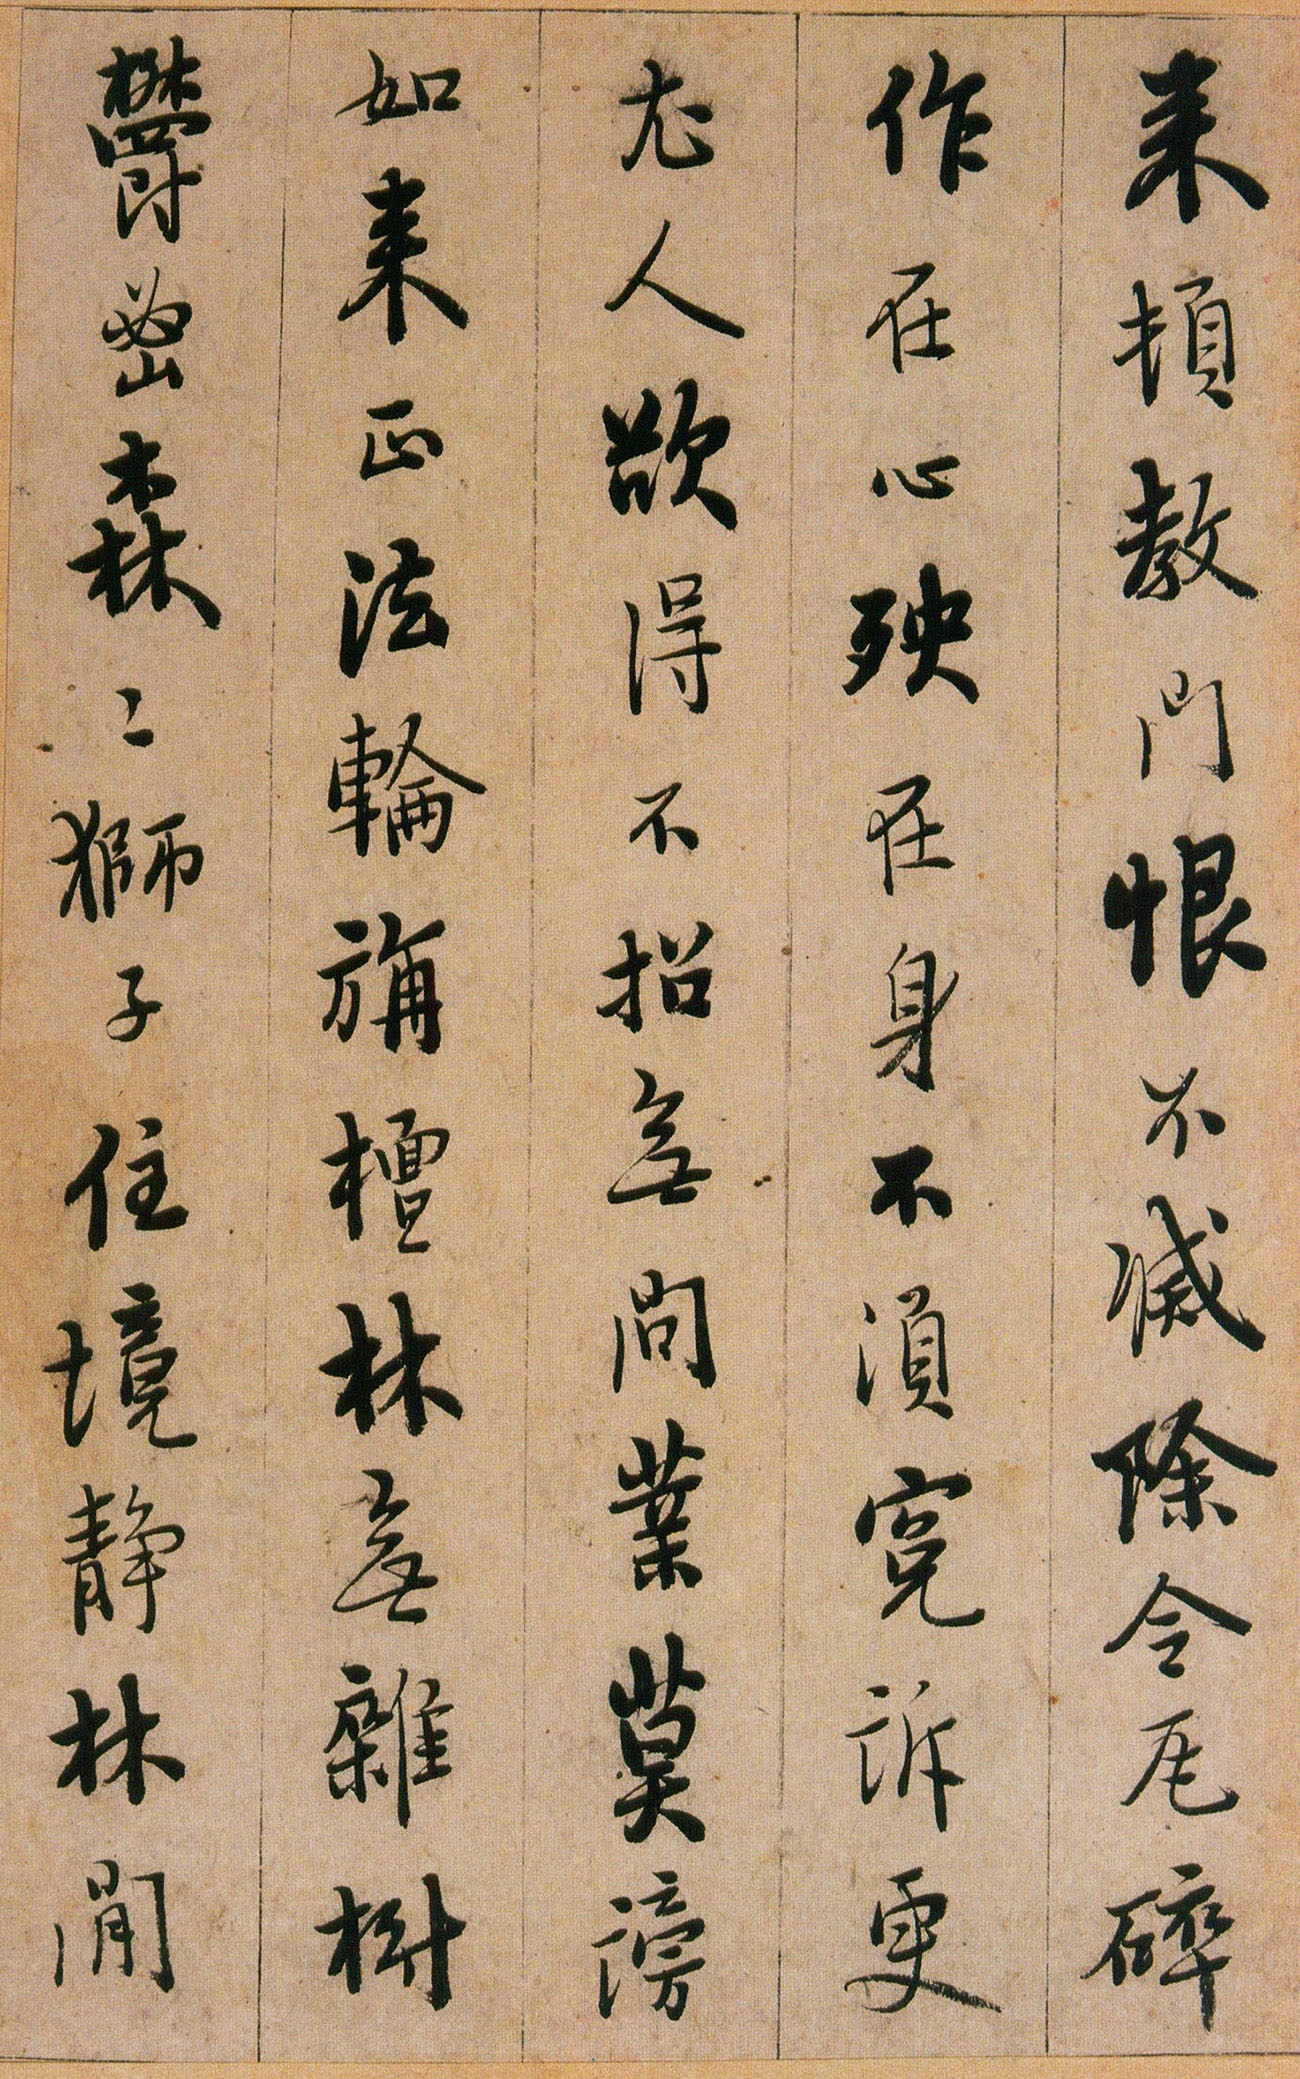 来頓教門恨不滅除令瓦碎
作在心殃在身不須冤訴更
尤人欲得不招無間業莫謗
如来正法輪旃檀林無雜樹
鬱密森〻獅子住境静林閒